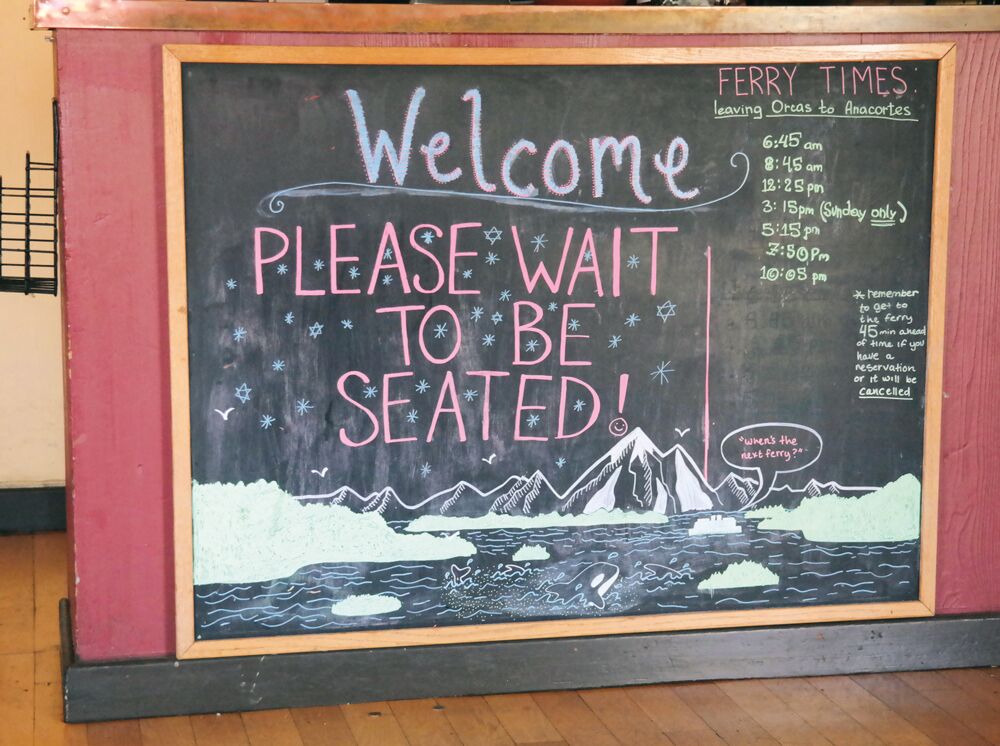 Welcome
PLEASE WAIT
TO BE
SEATED!
FERRY TIMES:
leaving Orcas to Anacortes
6:45 am
8:45 am
12:25 pm
3:15pm (Sunday only)
5:15 pm
7:50 Pm
10:05 pm
* remember
to get to
the ferry
45 min ahead
of time if you
have a
reservation
or it will be
cancelled
"when's the
next ferry?"